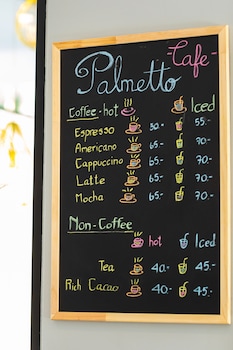 Palmetto Cafe-
Coffee-hot Iced
Espresso 50.- 55.-
Americano 65.- 70.-
Cappuccino 65.- 70.-
Latte 65.- 70.-
Mocha 65.- 70.-
Non-Coffee
hot Iced
Tea 40.- 45.-
Rich Cacao 40.- 45.-